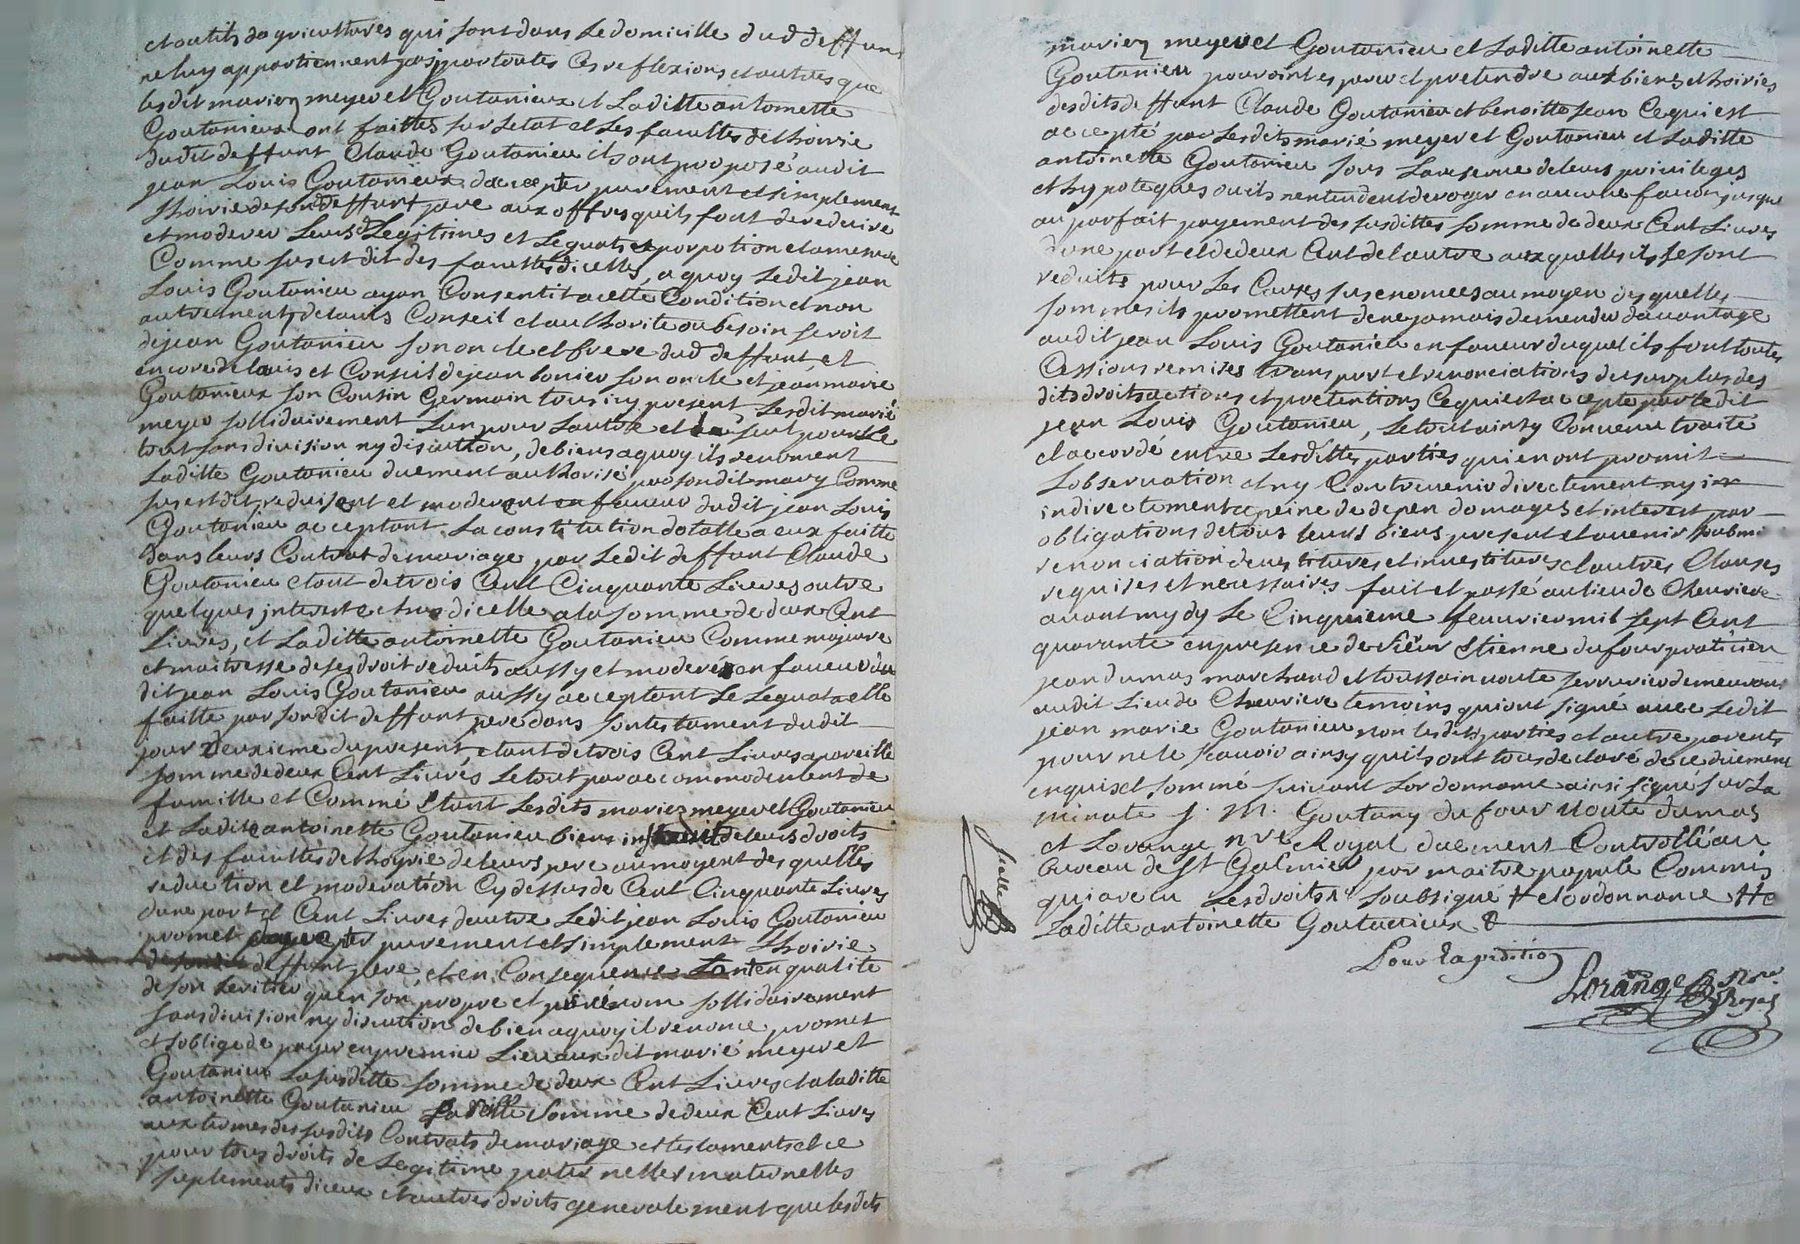 et outils dagricultures qui sont dans le domicille dud deffun
ne luy appartiennent pas, partoutes ces reflexions et autres que
lesdit mariez meyer et Goutanieux et Laditte antoinette
Goutanieux ont faittes sur letat et les facultes delhoirie
dudit deffunt Claude Goutanieu ils ont proposé audit
jean Louis Goutanieux daccepter purement et simplement
lhoirie desondit deffunt pere aux offres quils font dereduire
et moderer Leurs Legitimes et Leguats et porpotion etamesure
Comme susest dit des facultes dicelles, a quoy Ledit jean
Louis Goutanieu ayan Consentit acette Condition et non
autrement, delavis Conseil et authorite ou besoin seroit
dejean Goutanieu son oncle et frere dud deffunt et
encore delavis et Conseil dejean bonier son oncle et jean marie
Goutanieux son Cousin Germain tous icy present, Lesdit marié
meyer sollidairement Lun pour Lautre et seul pour le
tout sans division ny discution, debiens aquoy ils renoncent
Laditte Goutanieu duement authorisé par sondit mary Comme
susest dit, reduisent et moderent en faveur dudit jean Louis
Goutanieu acceptant La constitution dotalle a eux faitte
dans leurs Contrat de mariage par Ledit deffunt Claude
Goutanieu etant detrois Cent Cinquante Livres outre
quelques interest echus dicelle ala somme de deux Cent
Livres, et Laditte antoinette Goutanieu Comme majeure
et maitresse deses droit reduits aussy et moderer en faveur du
dit jean Louis Goutanieu aussy acceptant Le Leguat aelle
faitte par sondit deffunt pere dans son testament dudit
jour deuxieme dupresent, etant detrois Cent Livres apareille
somme dedeux Cent Livres Letout par accommodement de
famille et Comme Etant Lesdits mariez meyer et Goutanieu
et Ladite antoinette Goutanieu biens deleurs droits
et des facultes delhoyrie deleurs pere aumoyent des quelles
reduction et moderation Cydessus de Cent Cinquante Livres
dune part et Cent Livres dautre Ledit jean Louis Goutanieu
promet purement et simplement Lhoirie
deffunt pere, et en Consequence tant en qualité
de son heritier quen son propre et privé nom sollidairement
sans division ny discution debien aquoy il renonce promet
et soblige de payer en premier Lieu aux dit marié meyer et
Goutanieu La susditte somme de deux Cent Livres et a laditte
antoinette Goutanieu Laditte Somme dedeux Cent Livres
aux termes des susdits Contrats de mariage et testament et ce
pour tous droits de Legitime paternelles maternelles
suplements diceux et autres droits generalement que lesdits
mariez meyer et Goutanieu et Laditte antoinette
Goutanieu pouvoint esperer et pretendre aux biens et hoiries
desdits deffunt Claude Goutanieu et benoitte jean Cequi est
accepté par Lesdits marié meyer et Goutanieu et Laditte
antoinette Goutanieu sous Lareserve deleurs privileges
et hypoteques ou ils nentendent deroger en aucune facon jusque
au parfait payement des susdittes somme de deux Cent Livres
dune part et de deux Cent delautre auxquelles ils se sont
reduits pour Les Causes susenomees au moyen desquelles
sommes ils promettent de ne jamais demender davantage
audit jean Louis Goutanieu en faveur duquel ils font toutes
Cessions remises trans port et renonciations du surplus des
dits droits actions et pretentions Cequiest accepté par Ledit
jean Louis Goutanieu, Letout ainsy Convenu traité
et accordé entre Lesdittes parties qui en ont promit
Lobservation et ny Contrevenir directement ny in
indirectement apeine de depen domages et interest par
obligations detous leurs biens present et avenir soubmi
renonciation devestitures et investitures et autres Clauses
requises et necessaires fait et passé au lieu de Chevrieres
avant mydy Le Cinquieme feauvrier mil sept Cent
quarante enpresence de sieur Etienne dufour praticien
jean dumas marchand et toussain voute serrurier demeurans
audit Lieu de Chevriere temoins qui ont signé avec Ledit
jean marie Goutanieu non lesdits parties et autre parents
pour ne le scavoir ainsy quils ont tous declaré de ce duement
enquis et sommé suivant Lordonnance ainsi signé sur La
minute J. M. Goutany dufour Voute dumas
et Lorange nre Royal duement Controllé au
bureau de St Galmier par maitre Commis
qui areçu Lesdroits soubsigné et ordonnance
Laditte antoinette Goutanieux &
Pour Expedition
Lorange Nore
Royal